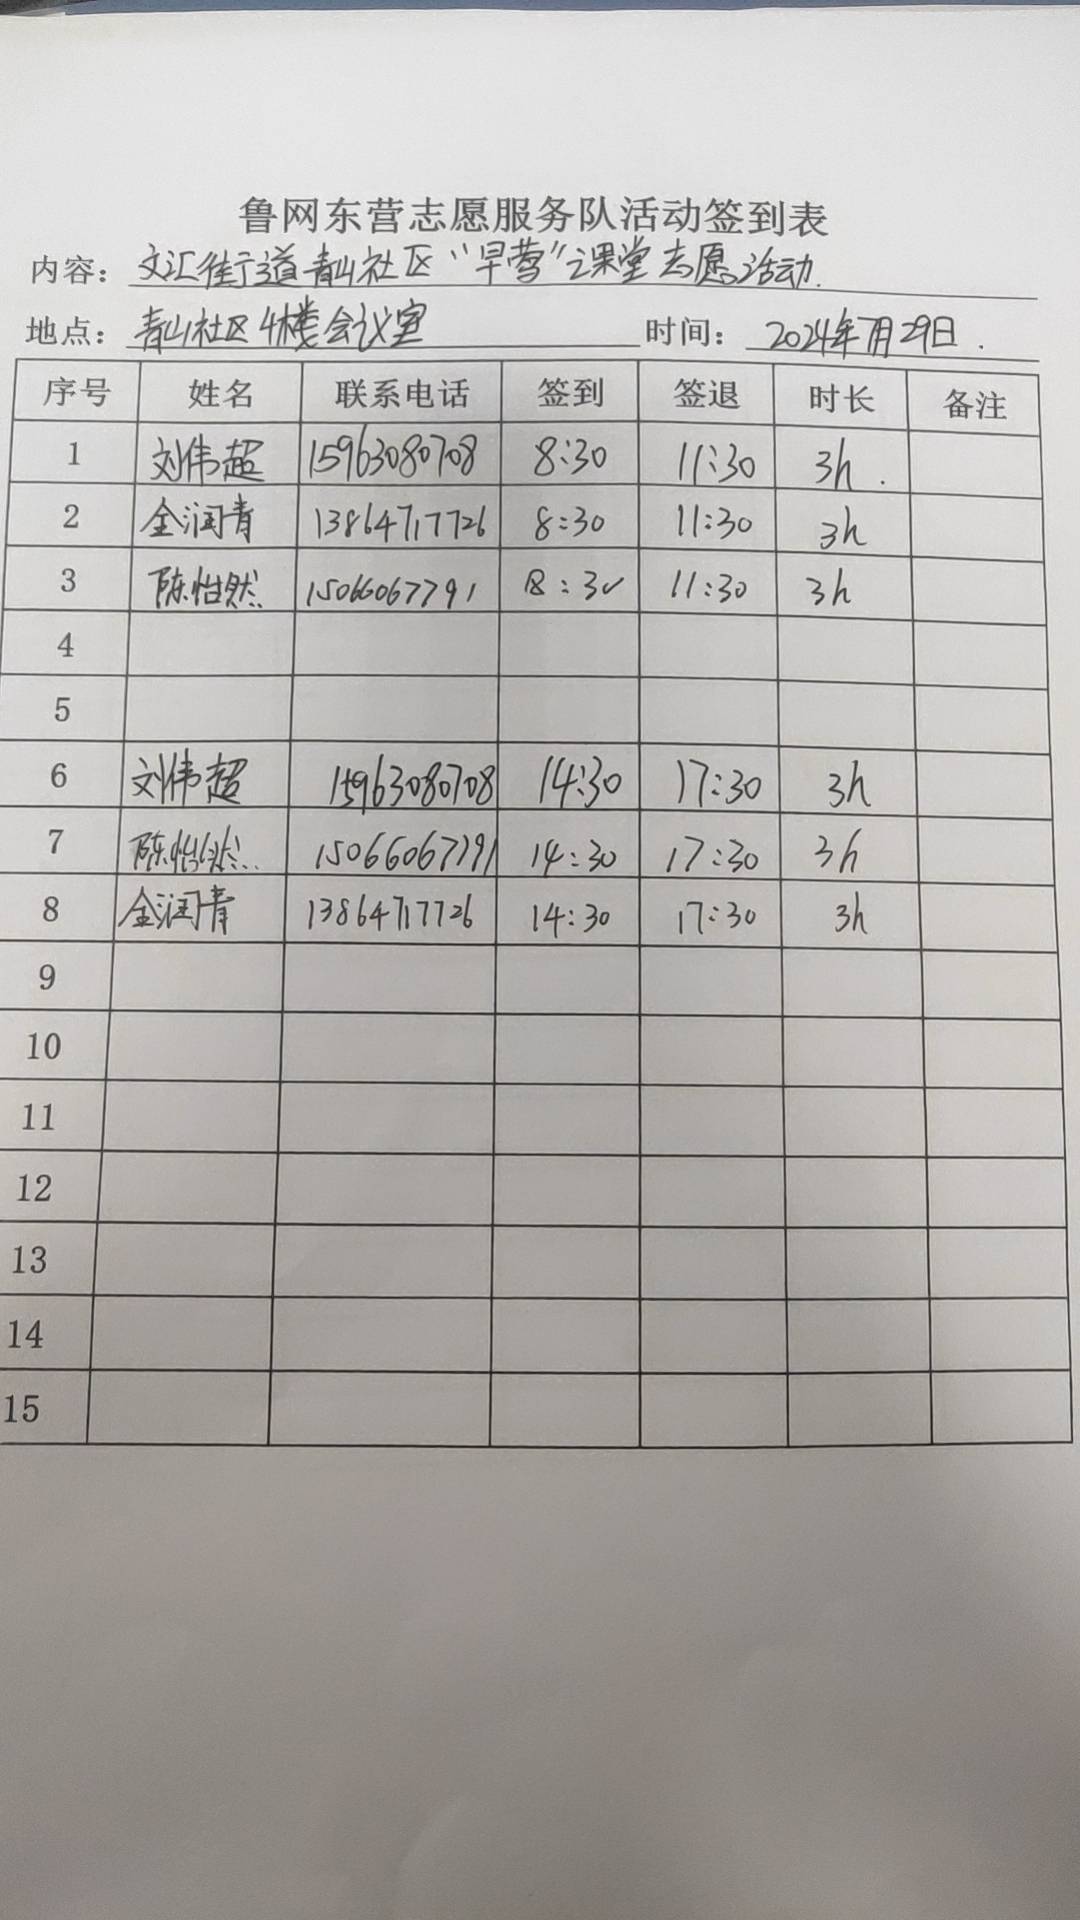 鲁网东营志愿服务队活动签到表
内容：文汇街道青山社区“早营”课堂志愿活动.
地点：青山社区4楼会议室 时间：2024年7月29日.
序号 姓名 联系电话 签到 签退 时长 备注
1 刘伟超 15963080708 8:30 11:30 3h.
2 金润青 13864717726 8:30 11:30 3h
3 陈怡然. 15066067791 8:30 11:30 3h
4
5
6 刘伟超 15963080708 14:30 17:30 3h
7 陈怡然... 15066067791 14:30 17:30 3h
8 金润青 13864717726 14:30 17:30 3h
9
10
11
12
13
14
15